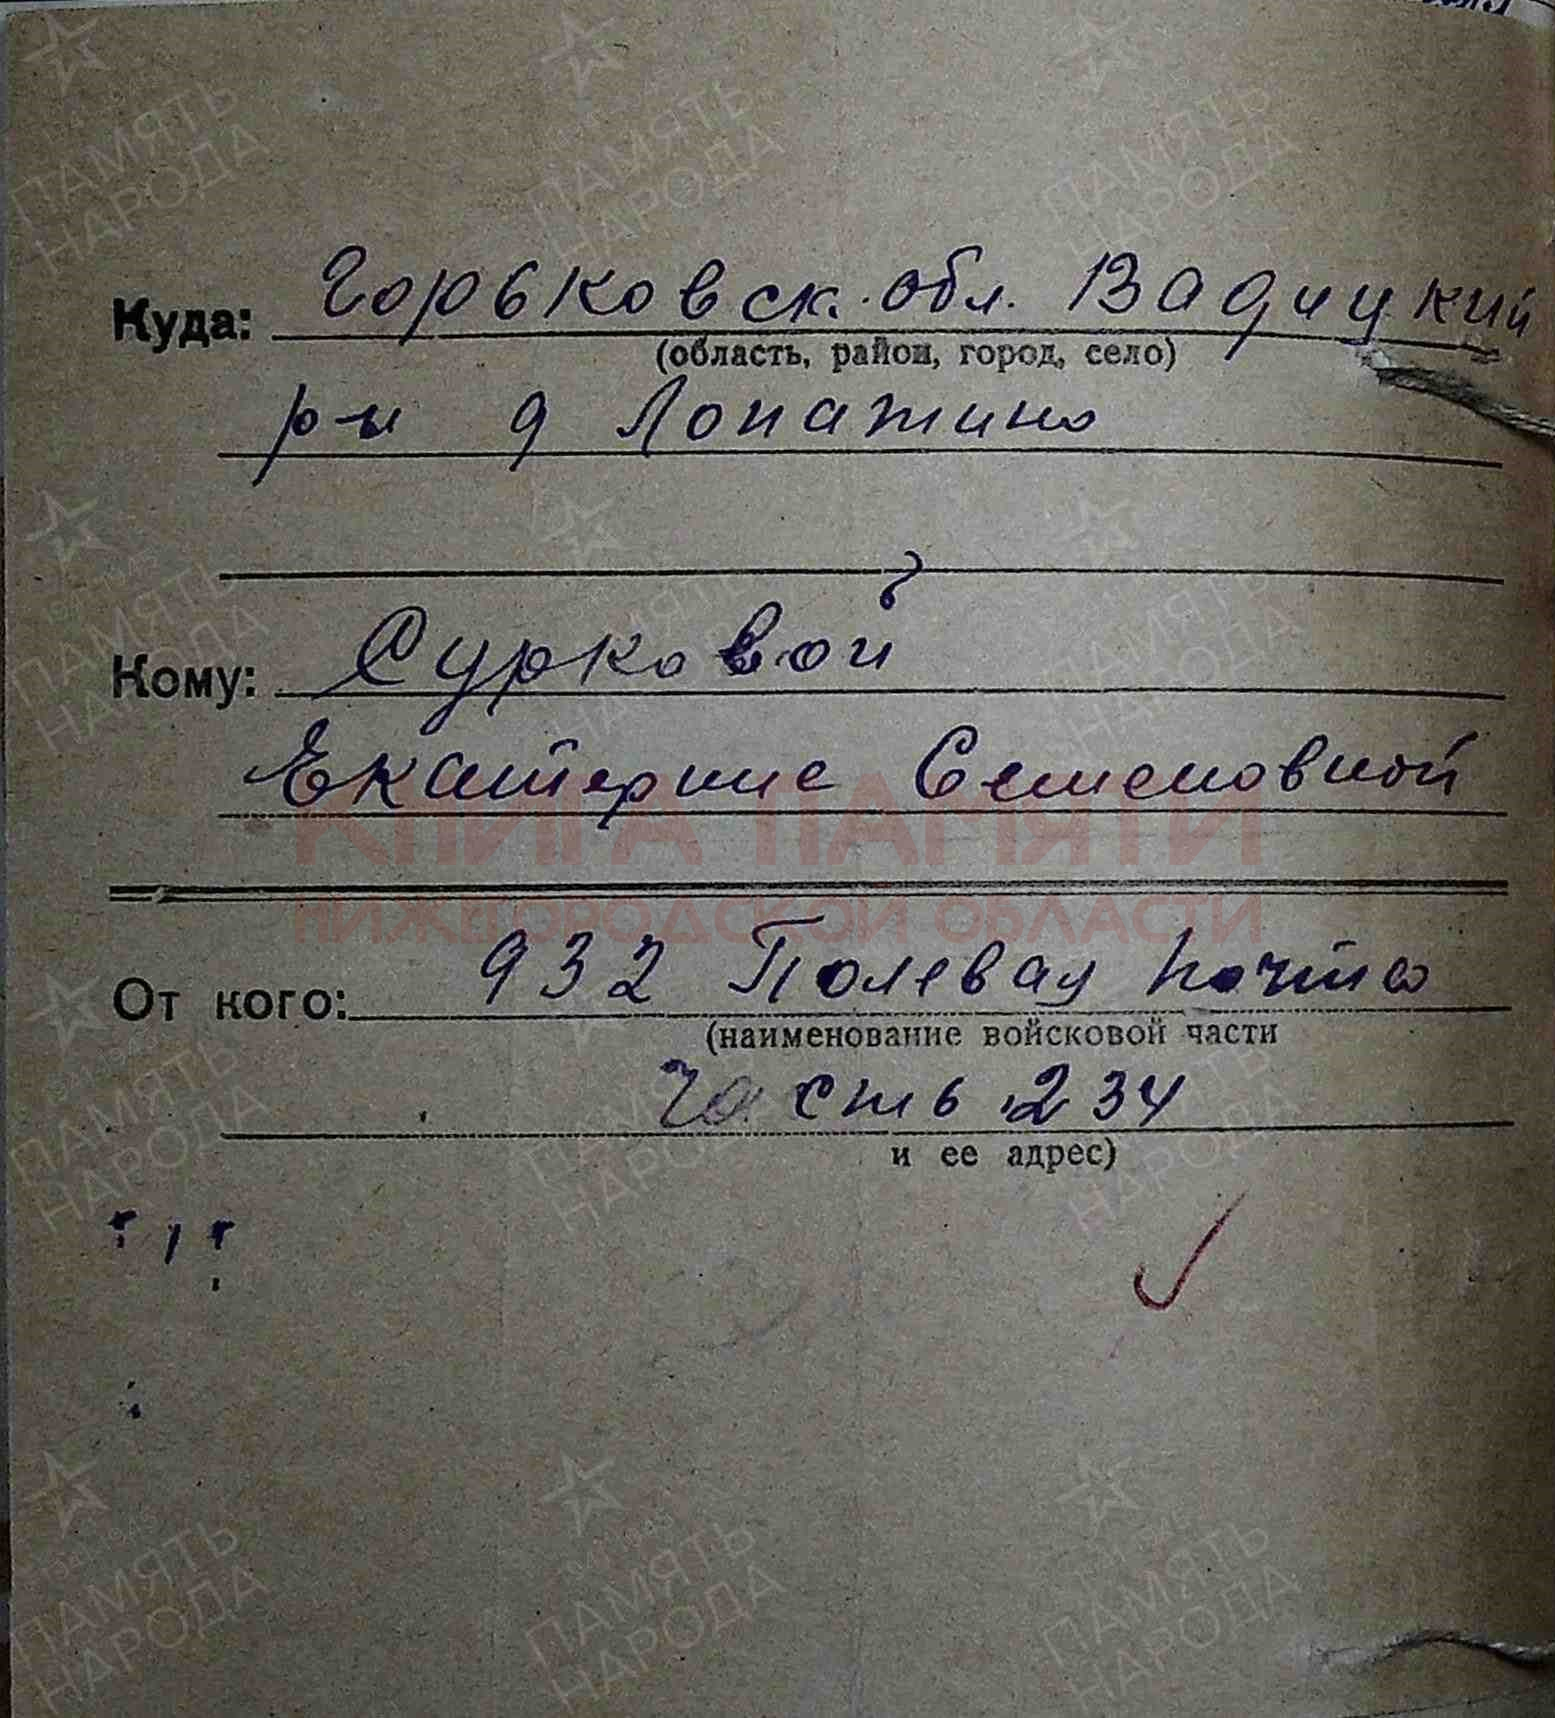 Куда: Горьковск. обл. Вадчцкий
(область, район, город, село)
р-н д Лопатино
Кому: Сурковой
Екатерине Семеновной
КНИГА ПАМЯТИ
НИЖЕГОРОДСКОЙ ОБЛАСТИ
От кого: 932 Полевая почта
(наименование войсковой части
часть 234
и ее адрес)
ПАМЯТЬ
НАРОДА